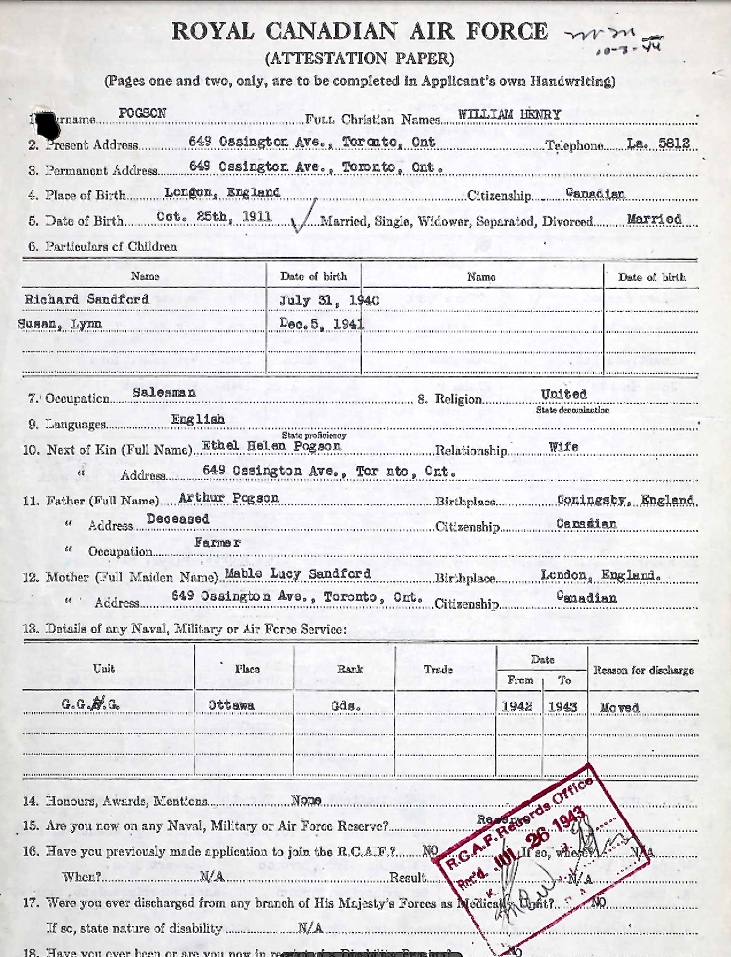 ROYAL CANADIAN AIR FORCE
10-3-44
(ATTESTATION PAPER)
(Pages one and two, only, are to be completed in Applicant's own Handwriting)
1. Surname POGSON Full Christian Names WILLIAM HENRY
2. Present Address 649 Ossington Ave., Toronto, Ont Telephone La. 5812
3. Permanent Address 649 Ossington Ave., Toronto, Ont.
4. Place of Birth London, England Citizenship Canadian
5. Date of Birth Oct. 25th, 1911 Married, Single, Widower, Separated, Divorced Married
6. Particulars of Children
Name Date of birth Name Date of birth
Richard Sandford July 31, 1940
Susan, Lynn Dec.5, 1941
7. Occupation Salesman 8. Religion United
State denomination
9. Languages English
State proficiency
10. Next of Kin (Full Name) Ethel Helen Pogson Relationship Wife
" Address 649 Ossington Ave., Tor nto, Ont.
11. Father (Full Name) Arthur Pogson Birthplace Coningsby, England
" Address Deceased Citizenship Canadian
" Occupation Farmer
12. Mother (Full Maiden Name) Mable Lucy Sandford Birthplace London, England.
" Address 649 Ossington Ave., Toronto, Ont. Citizenship Canadian
13. Details of any Naval, Military or Air Force Service:
Unit Place Rank Trade Date Reason for discharge
From To
G.G.F.G. Ottawa Gds. 1942 1943 Moved
14. Honours, Awards, Mentions None
15. Are you now on any Naval, Military or Air Force Reserve?
R.C.A.F. Records Office
Rec'd JUL 26 1943
16. Have you previously made application to join the R.C.A.F.? NO If so, where? N/A
When? N/A Result N/A
17. Were you ever discharged from any branch of His Majesty's Forces as Medically Unfit? NO
If so, state nature of disability N/A
18. Have you ever been or are you now in NO